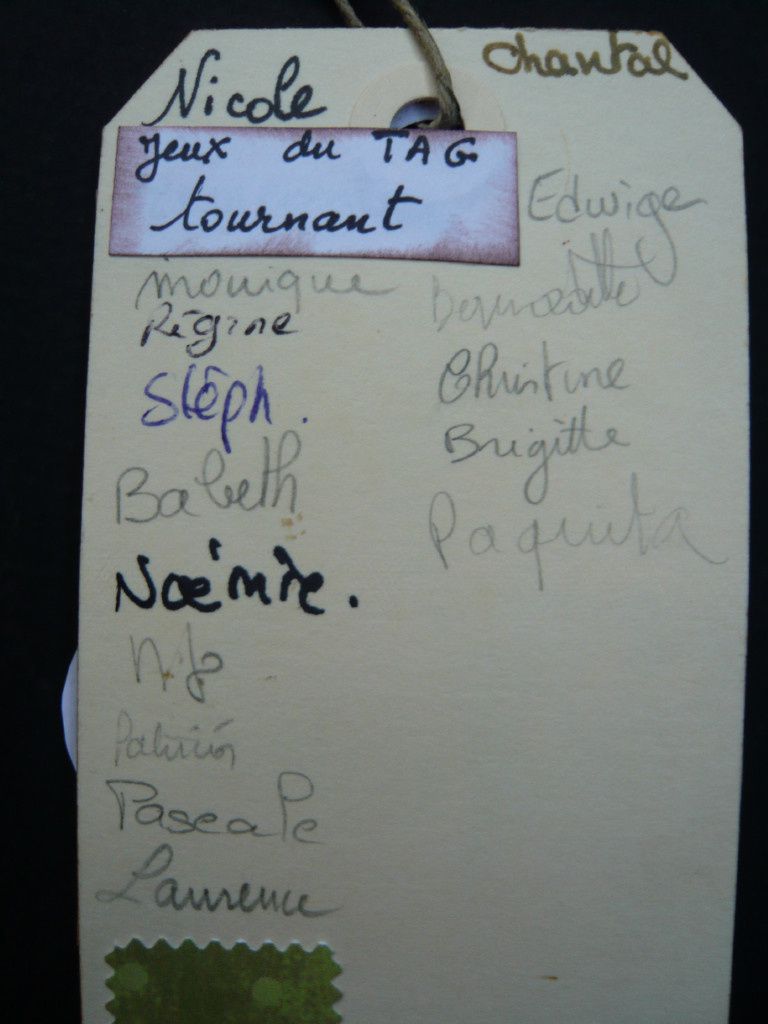 Chantal
Nicole
Jeux du TAG
tournant
Edwige
monique
Bernadette
Régine
Christine
Stéph.
Brigitte
Babeth
Paquita
Noémie.
Pascale
Laurence